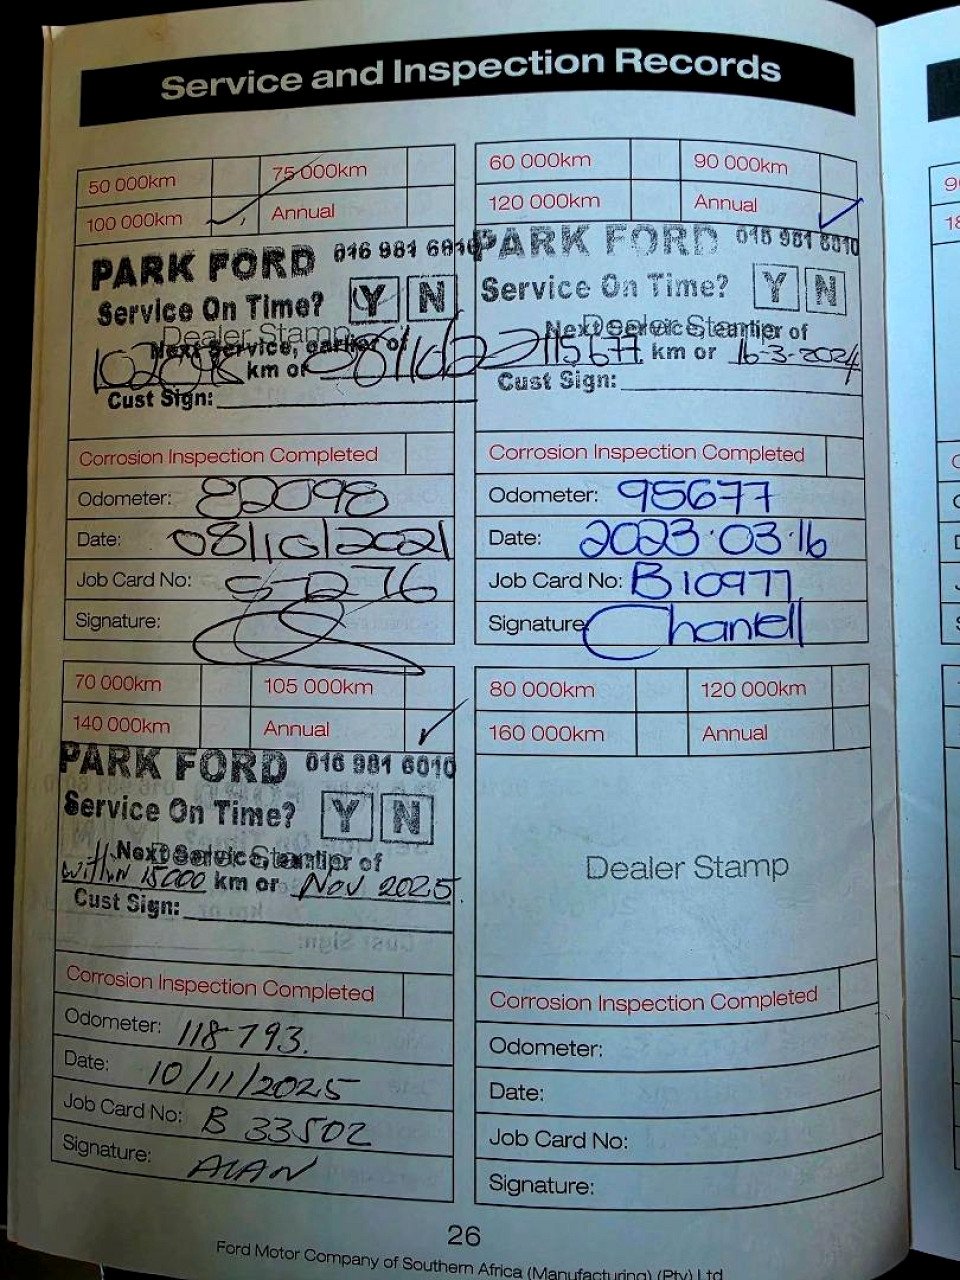 Service and Inspection Records
50 000km 75 000km
100 000km Annual
PARK FORD 016 981 6010
Service On Time? Y N
Dealer Stamp
Next Service, earlier of
102098 km or 08/10/22
Cust Sign:
Corrosion Inspection Completed
Odometer: 82098
Date: 08/10/2021
Job Card No: 
Signature:
60 000km 90 000km
120 000km Annual
PARK FORD 016 981 6010
Service On Time? Y N
Dealer Stamp
Next Service, earlier of
115677 km or 16-3-2024
Cust Sign:
Corrosion Inspection Completed
Odometer: 95677
Date: 2023.03.16
Job Card No: B10977
Signature: Chantell
70 000km 105 000km
140 000km Annual
PARK FORD 016 981 6010
Service On Time? Y N
Dealer Stamp
Next Service, earlier of
within 15000 km or Nov 2025
Cust Sign:
Corrosion Inspection Completed
Odometer: 118-793.
Date: 10/11/2025
Job Card No: B 33502
Signature: ALAN
80 000km 120 000km
160 000km Annual
Dealer Stamp
Corrosion Inspection Completed
Odometer:
Date:
Job Card No:
Signature:
26
Ford Motor Company of Southern Africa (Manufacturing) (Pty) Ltd